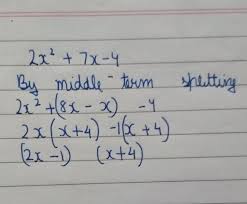 2x² + 7x - 4
By middle - term spetting
2x² + (8x - x) - 4
2x (x+4) -1(x+4)
(2x-1) (x+4)